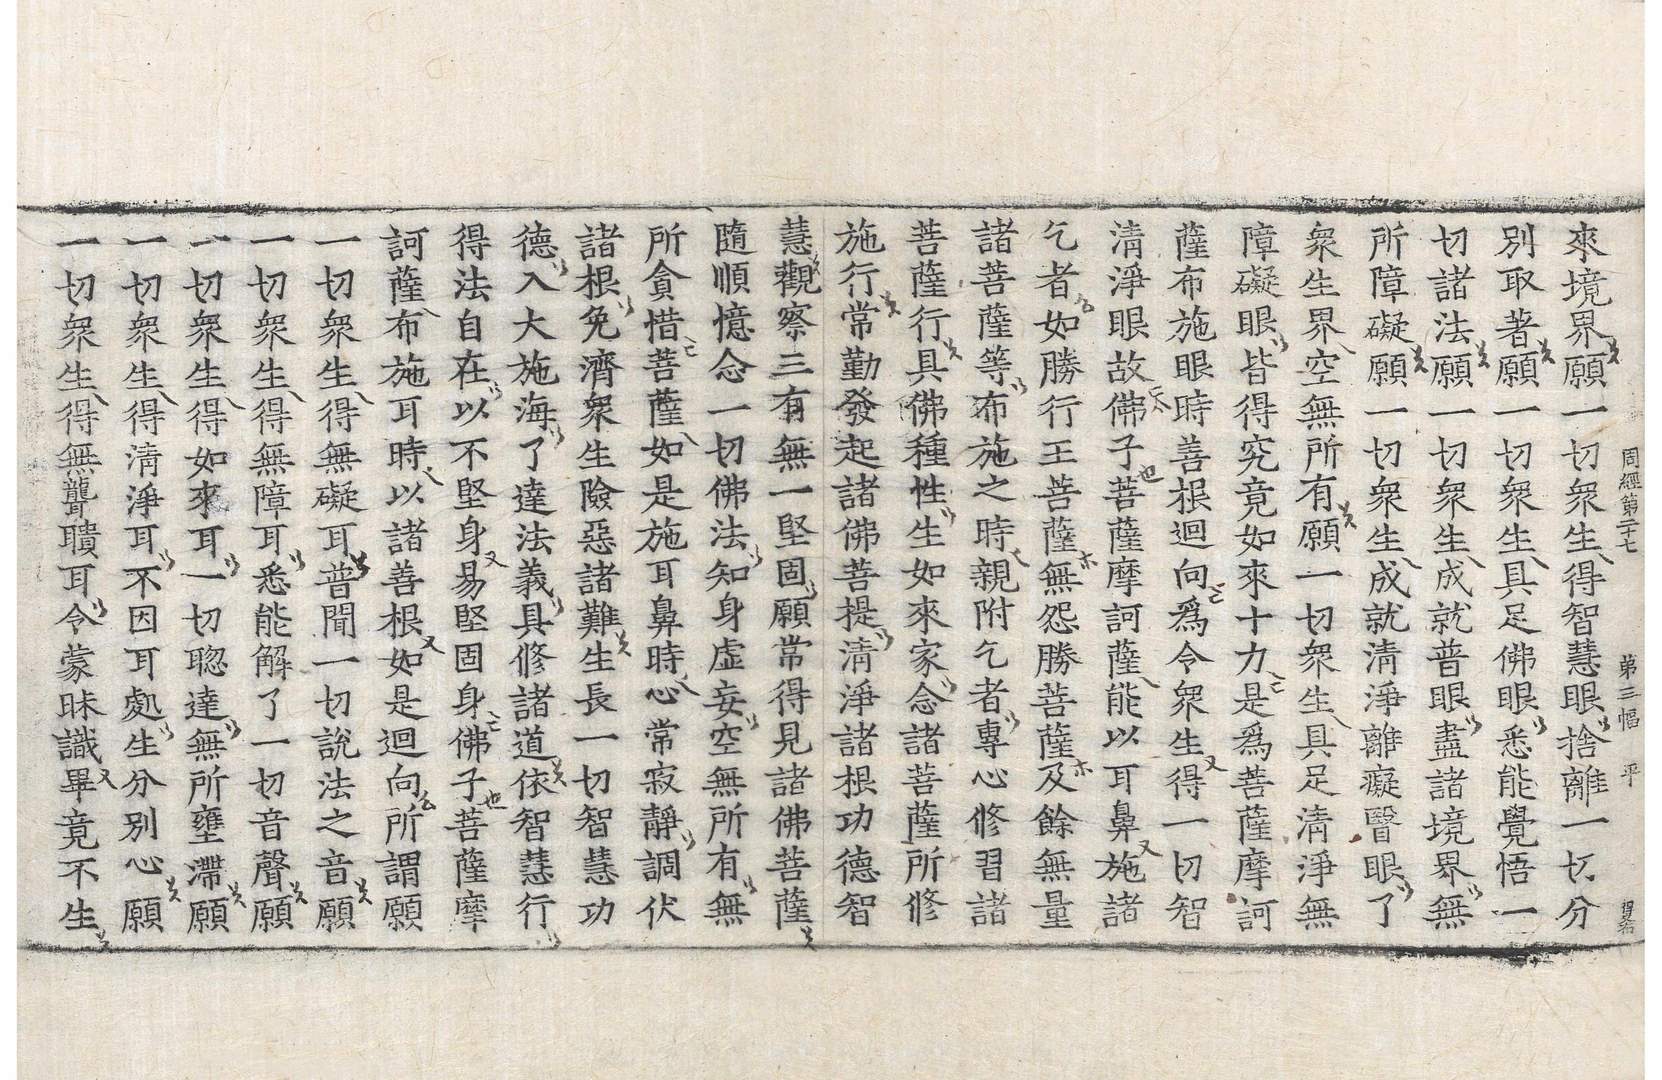 周經第二十七 第三幅 平
來境界願一切衆生得智慧眼捨離一切分
別取著願一切衆生具足佛眼悉能覺悟一
切諸法願一切衆生成就普眼盡諸境界無
所障礙願一切衆生成就清淨離癡瞖眼了
衆生界空無所有願一切衆生具足清淨無
障礙眼皆得究竟如來十力是爲菩薩摩訶
薩布施眼時善根迴向爲令衆生得一切智
清淨眼故佛子菩薩摩訶薩能以耳鼻施諸
乞者如勝行王菩薩無怨勝菩薩及餘無量
諸菩薩等布施之時親附乞者專心修習諸
菩薩行具佛種性生如來家念諸菩薩所修
施行常勤發起諸佛菩提清淨諸根功德智
慧觀察三有無一堅固願常得見諸佛菩薩
隨順憶念一切佛法知身虛妄空無所有無
所貪惜菩薩如是施耳鼻時心常寂靜調伏
諸根免濟衆生險惡諸難生長一切智慧功
德入大施海了達法義具修諸道依智慧行
得法自在以不堅身易堅固身佛子菩薩摩
訶薩布施耳時以諸善根如是迴向所謂願
一切衆生得無礙耳普聞一切說法之音願
一切衆生得無障耳悉能解了一切音聲願
一切衆生得如來耳一切聰達無所壅滯願
一切衆生得清淨耳不因耳處生分別心願
一切衆生得無聾聵耳令蒙昧識畢竟不生